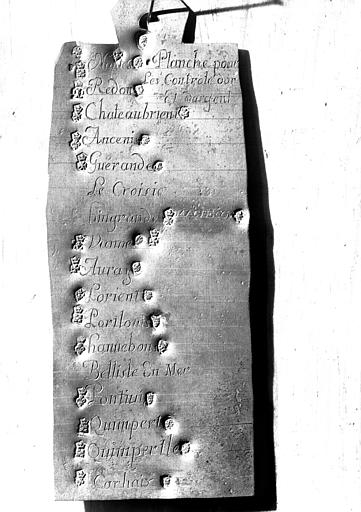 Planche pour
Les Controle d'or
et d'argent
Redon
Chateaubrient
Ancenis
Guérande
Le Croisic
hingrande
Vanne
Auray
Lorient
Portlouis
hannebon
Bellisle En Mer
Pontivi
Quimpert
Quimperlle
Carhaix